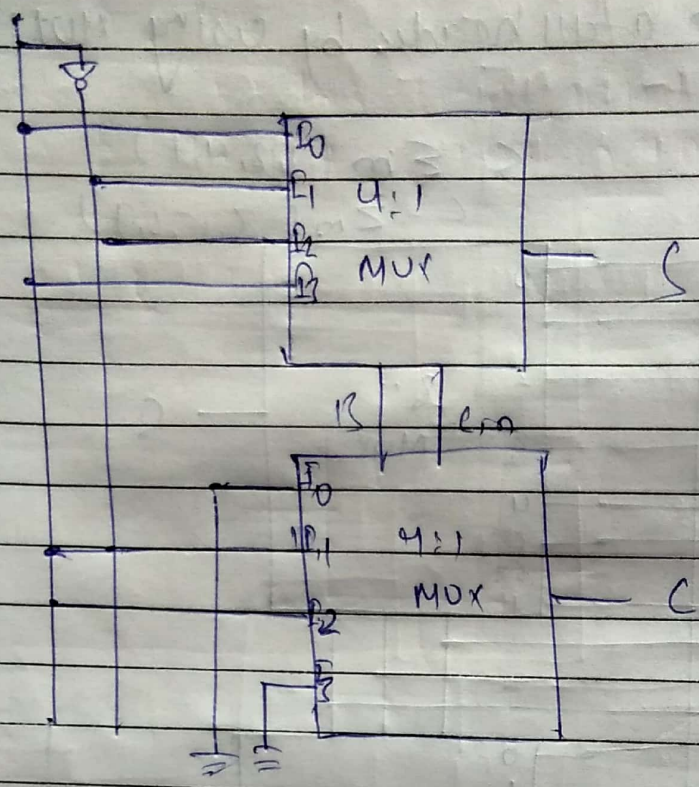 I0
I1 4:1
I2
MUX
I3
S
B Cin
I0
I1 4:1
MUX
C
I2
I3